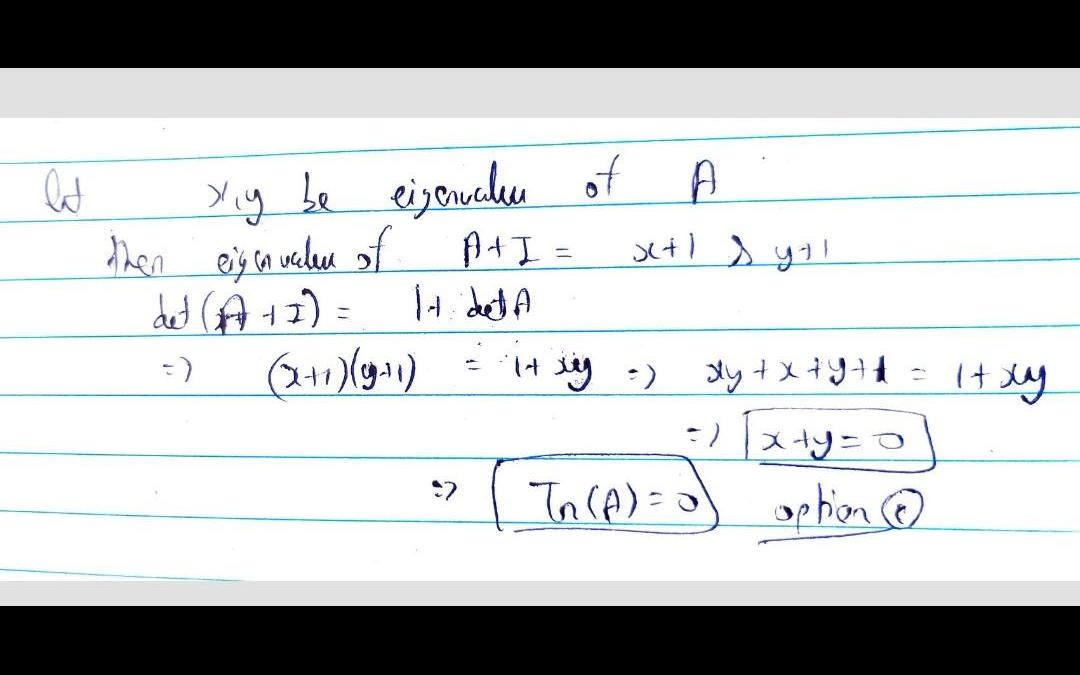 let x,y be eigenvalues of A
then eigenvalues of A+I = x+1 & y+1
det(A+I) = 1+ det A
=> (x+1)(y+1) = 1+ xy => xy+x+y+1 = 1+xy
=> x+y=0
=> Tr(A)=0 option